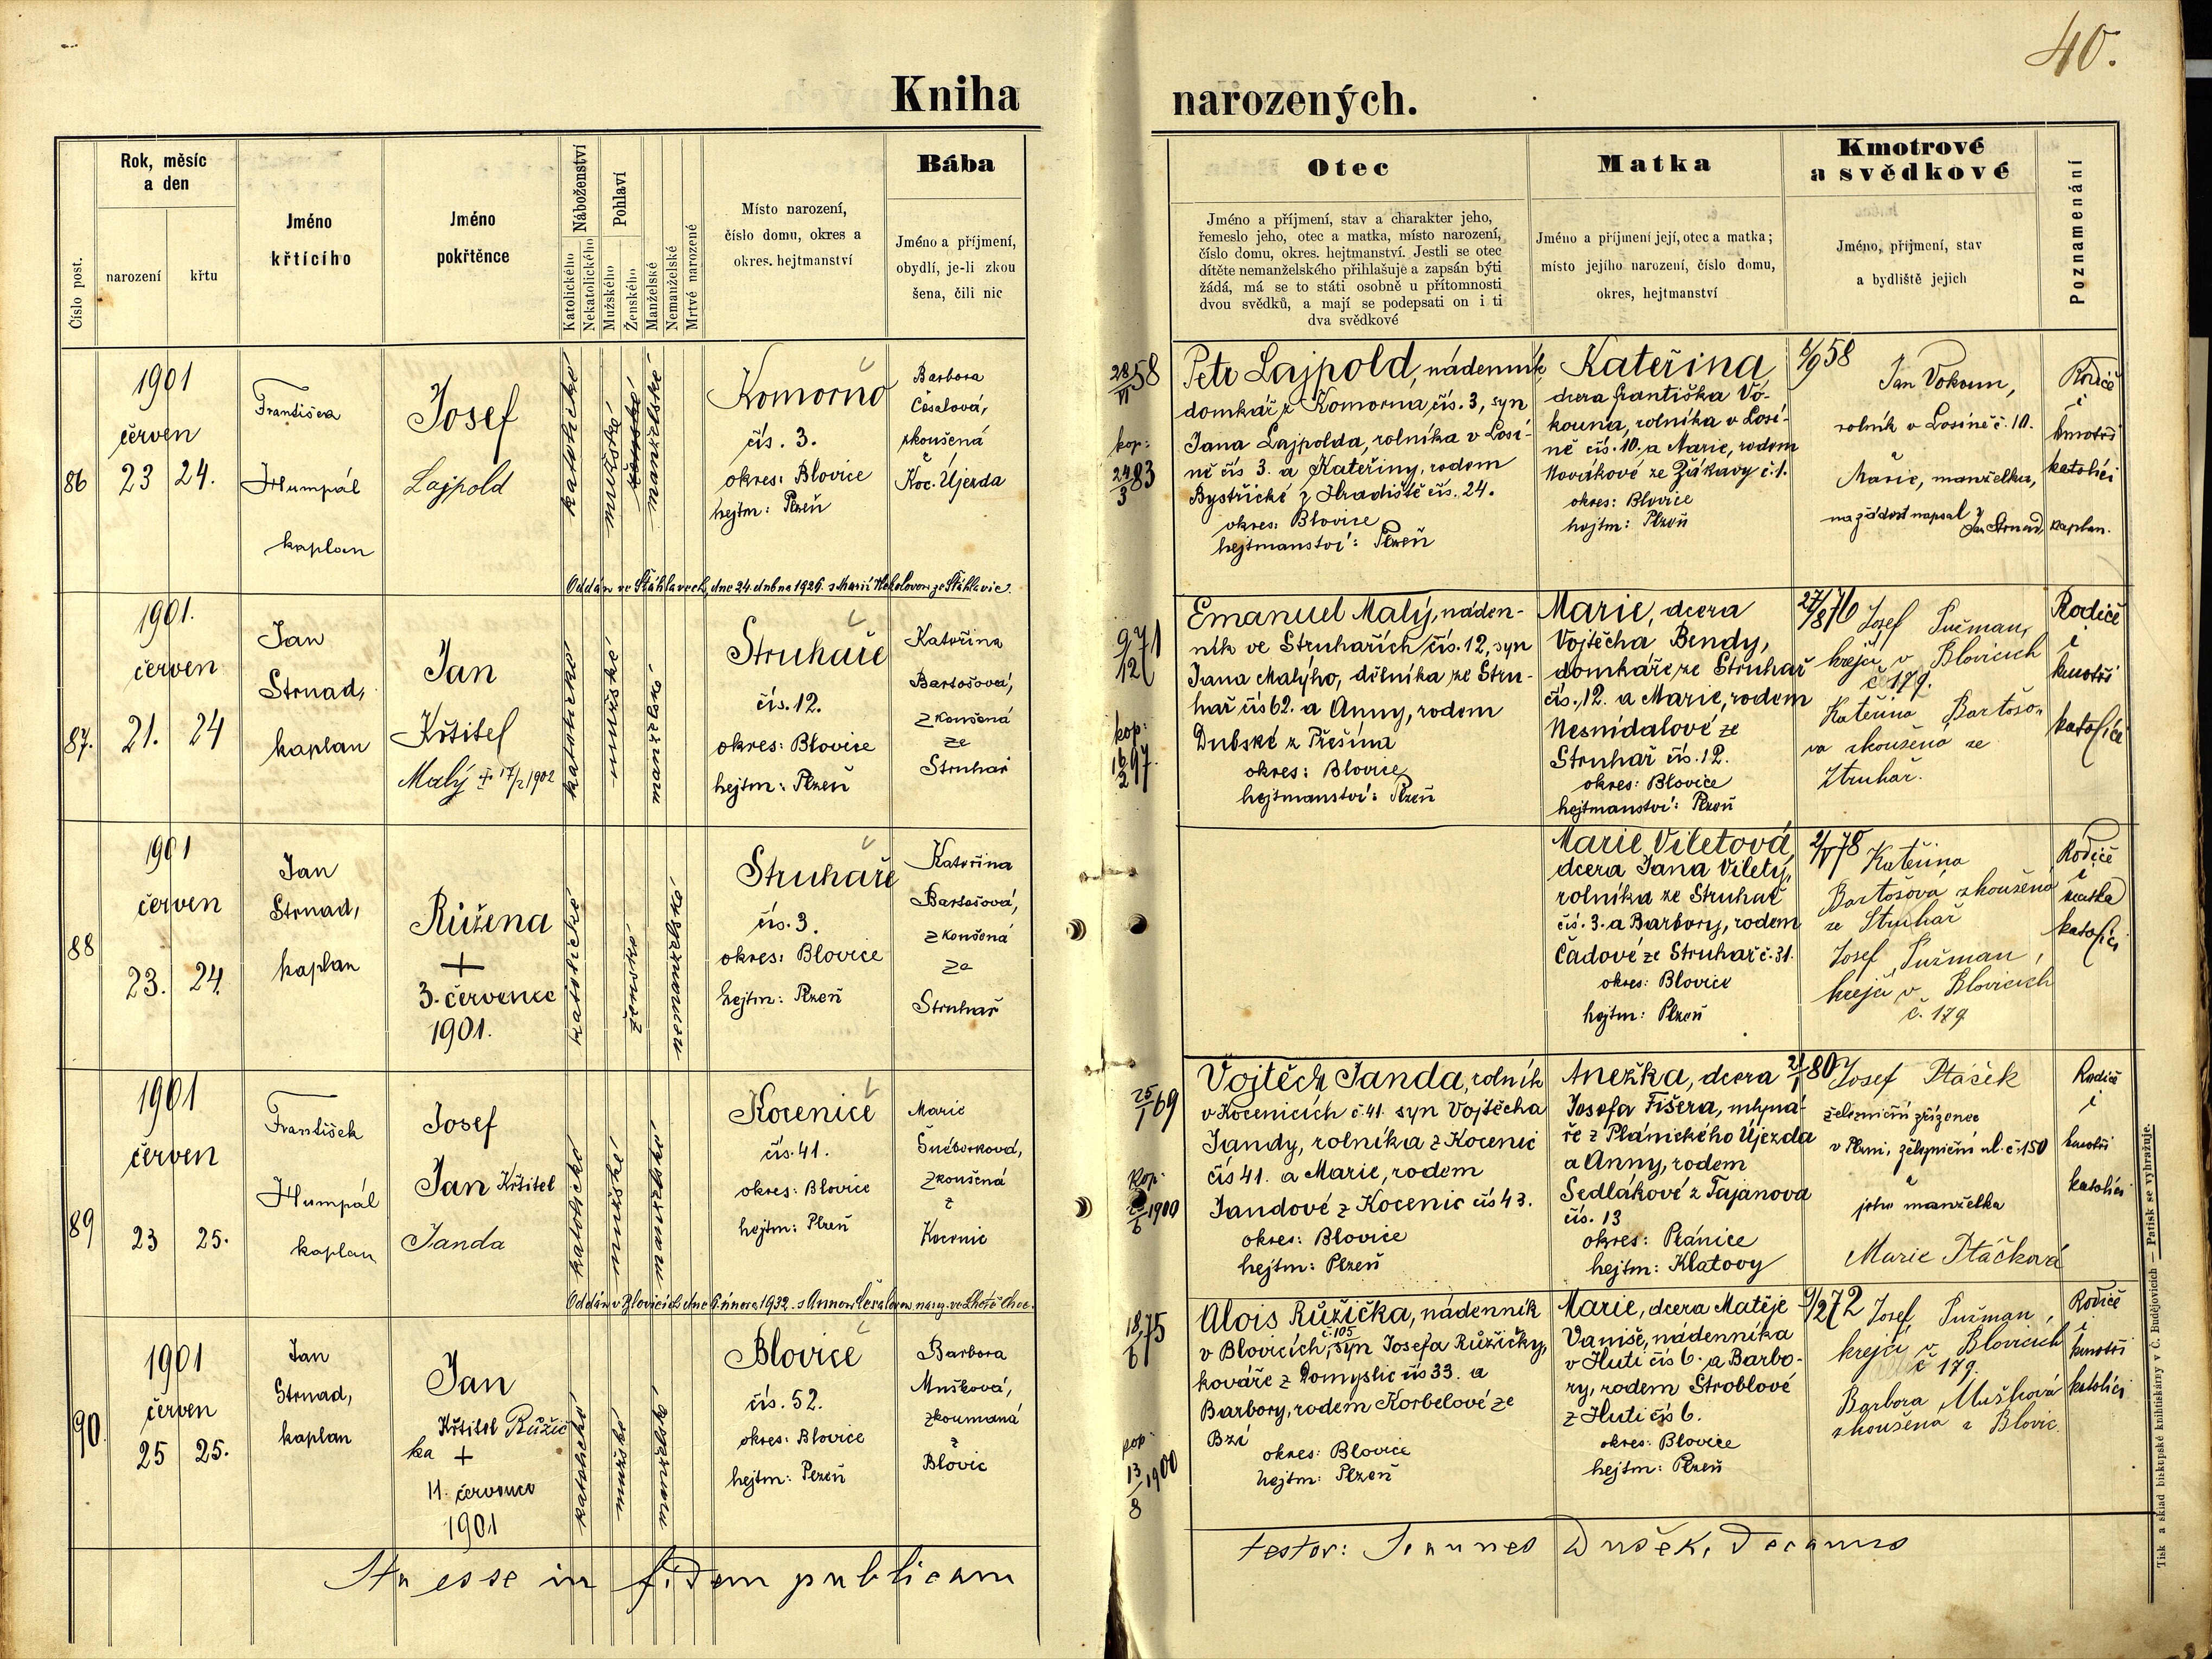 40.
Kniha narozených.
Číslo post.
Rok, měsíc
a den
narození
křtu
Jméno
křtícího
Jméno
pokřtěnce
Náboženství
Katolického
Nekatolického
Pohlaví
Mužského
Ženského
Manželské
Nemanželské
Mrtvě narozené
Místo narození,
číslo domu, okres a
okres. hejtmanství
Bába
Jméno a příjmení,
obydlí, je-li zkou
šena, čili nic
Otec
Jméno a příjmení, stav a charakter jeho,
řemeslo jeho, otec a matka, místo narození,
číslo domu, okres. hejtmanství. Jestli se otec
dítěte nemanželského přihlašuje a zapsán býti
žádá, má se to státi osobně u přítomnosti
dvou svědků, a mají se podepsati on i ti
dva svědkové
Matka
Jméno a příjmení její, otec a matka;
místo jejího narození, číslo domu,
okres, hejtmanství
Kmotrové
a svědkové
Jméno, příjmení, stav
a bydliště jejich
Poznamenání
86
1901
červen
23
24.
Humpál
kaplan
Josef
Lajpold
katolické
mužské
ženské
manželské
Komorno
čís. 3.
okres: Blovice
hejtm: Plzeň
Barbora
Česalová,
zkoušená
Koc. Újezda
28/VI 58
kop:
24/3 83
Petr Lajpold, nádenník
domkář z Komorna čís. 3, syn
Jana Lajpolda, rolníka v Losi-
ně čís 3. a Kateřiny, rodem
Bystřické z Hradiště čís. 24.
okres: Blovice
hejtmanství: Plzeň
Kateřina
dcera Františka Vo-
kouna, rolníka v Losi-
ně čís. 10. a Marie, rodem
Novákové ze Žákavy č. 1.
okres: Blovice
hejtm: Plzeň
Jan Vokoun,
rolník v Losině č. 10.
Marie, manželka,
na žádost napsal Jan Strnad, kaplan.
Rodiče
i
kmotři
katolíci
Oddán ve Šťáhlavech, dne 24. dubna 1926. s Marií
87.
1901.
červen
21.
24
Jan
Strnad,
kaplan
Jan
Křtitel
Malý
17/2 1902
katolické
mužské
manželské
Struhaře
čís. 12.
okres: Blovice
hejtm: Plzeň
Kateřina
Bartošová,
zkoušená
ze
Struhař
9/12 71
kop:
16/2 97.
Emanuel Malý, náden-
ník ve Struhařích čís. 12, syn
Jana Malýho, dělníka ze Stru-
hař čís 62. a Anny, rodem
Dubské z Přešína
okres: Blovice
hejtmanství: Plzeň
Marie, dcera
Vojtěcha Bendy,
domkáře ze Struhař
čís. 12. a Marie, rodem
Nesnídalové ze
Struhař čís. 12.
okres: Blovice
hejtmanství: Plzeň
27/8 76
Josef Pužman,
krejčí v Blovicích
č 179.
Kateřina Bartošo-
va zkoušená ze
Struhař.
Rodiče
i
kmotři
katolíci
88
1901
červen
23.
24.
Jan
Strnad,
kaplan
Růžena
+
3. července
1901.
katolické
ženské
nemanželské
Struhaře
čís. 3.
okres: Blovice
hejtm: Plzeň
Kateřina
Bartošová,
zkoušená
ze
Struhař
Marie Viletová,
dcera Jana Vilety,
rolníka ze Struhař
čís. 3. a Barbory, rodem
Čadové ze Struhař č. 31.
okres: Blovice
hejtm: Plzeň
2/V 78
Kateřina
Bartošova zkoušená
ze Struhař
Josef Pužman,
krejčí v Blovicích
č. 179
Rodiče
i
matka
katolíci
89
1901
červen
23
25.
František
Humpál
kaplan
Josef
Jan Křtitel
Janda
katolické
mužské
manželské
Kocenice
čís. 41.
okres: Blovice
hejtm: Plzeň
Marie
Šnéberková,
zkoušená
z
Kocenic
25/1 69
kop:
1900
Vojtěch Janda, rolník
v Kocenicích č. 41. syn Vojtěcha
Jandy, rolníka z Kocenic
čís 41. a Marie, rodem
Jandové z Kocenic čís 43.
okres: Blovice
hejtm: Plzeň
Anežka, dcera
Josefa Fišera, mlyná-
ře z Plánického Újezda
a Anny, rodem
Sedlákové z Tajanova
čís. 13
okres: Plánice
hejtm: Klatovy
21/1 80
Josef Ptáček
železniční zřízenec
v Plzni, železniční ul. č. 150
i
jeho manželka
Marie Ptáčková
Rodiče
i
kmotři
katolíci
Oddán v Blovicích dne 6. února 1932. s Annou Česalovou
90.
1901
červen
25
25.
Jan
Strnad,
kaplan
Jan
Křtitel Růžič
ka +
11. července
1901
katolické
mužské
manželské
Blovice
čís. 52.
okres: Blovice
hejtm: Plzeň
Barbora
Mušková,
zkoumaná
z
Blovic
18/6 75
kop:
13/8 1900
Alois Růžička, nádenník
v Blovicích, č. 105 syn Josefa Růžičky,
kováře z Domyslic čís 33. a
Barbory, rodem Korbelové ze
Bzí
okres: Blovice
hejtm: Plzeň
Marie, dcera Matěje
Vaniše, nádenníka
v Huti čís 6. a Barbo-
ry, rodem Stroblové
z Huti čís 6.
okres: Blovice
hejtm: Plzeň
9/2 72
Josef Pužman,
krejčí v Blovicích
č 179.
Barbora Mušková
zkoušena z Blovic.
Rodiče
i
kmotři
katolíci
Ita esse in fidem publicam
testor: Joannes Dušek, Decanus
Tisk a sklad biskupské knihtiskárny v Č. Budějovicích — Patisk se vyhražuje.